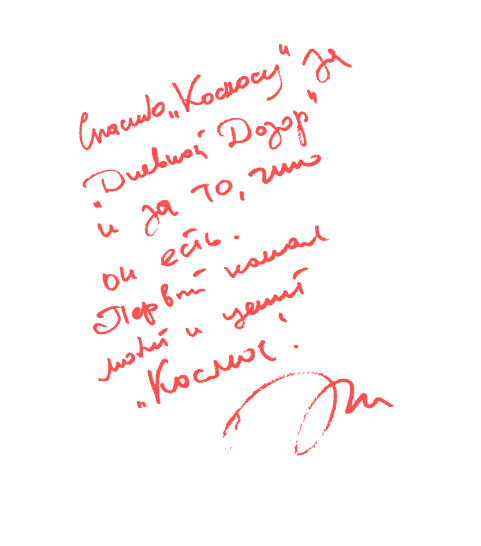 Спасибо „Космосу" за
"Дневной Дозор"
и за то, что
он есть.
Первый канал
любит и ценит
„Космос"!